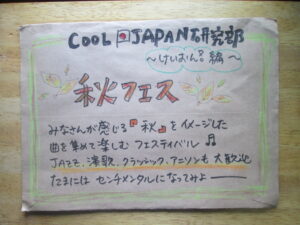 COOL JAPAN研究部
～けいおん 編～
秋フェス
みなさんが感じる『秋』をイメージした
曲を集めて楽しむ フェスティバル♬
JAZZ、演歌、クラシック、アニソンも 大歓迎
たまには センチメンタルになってみよー